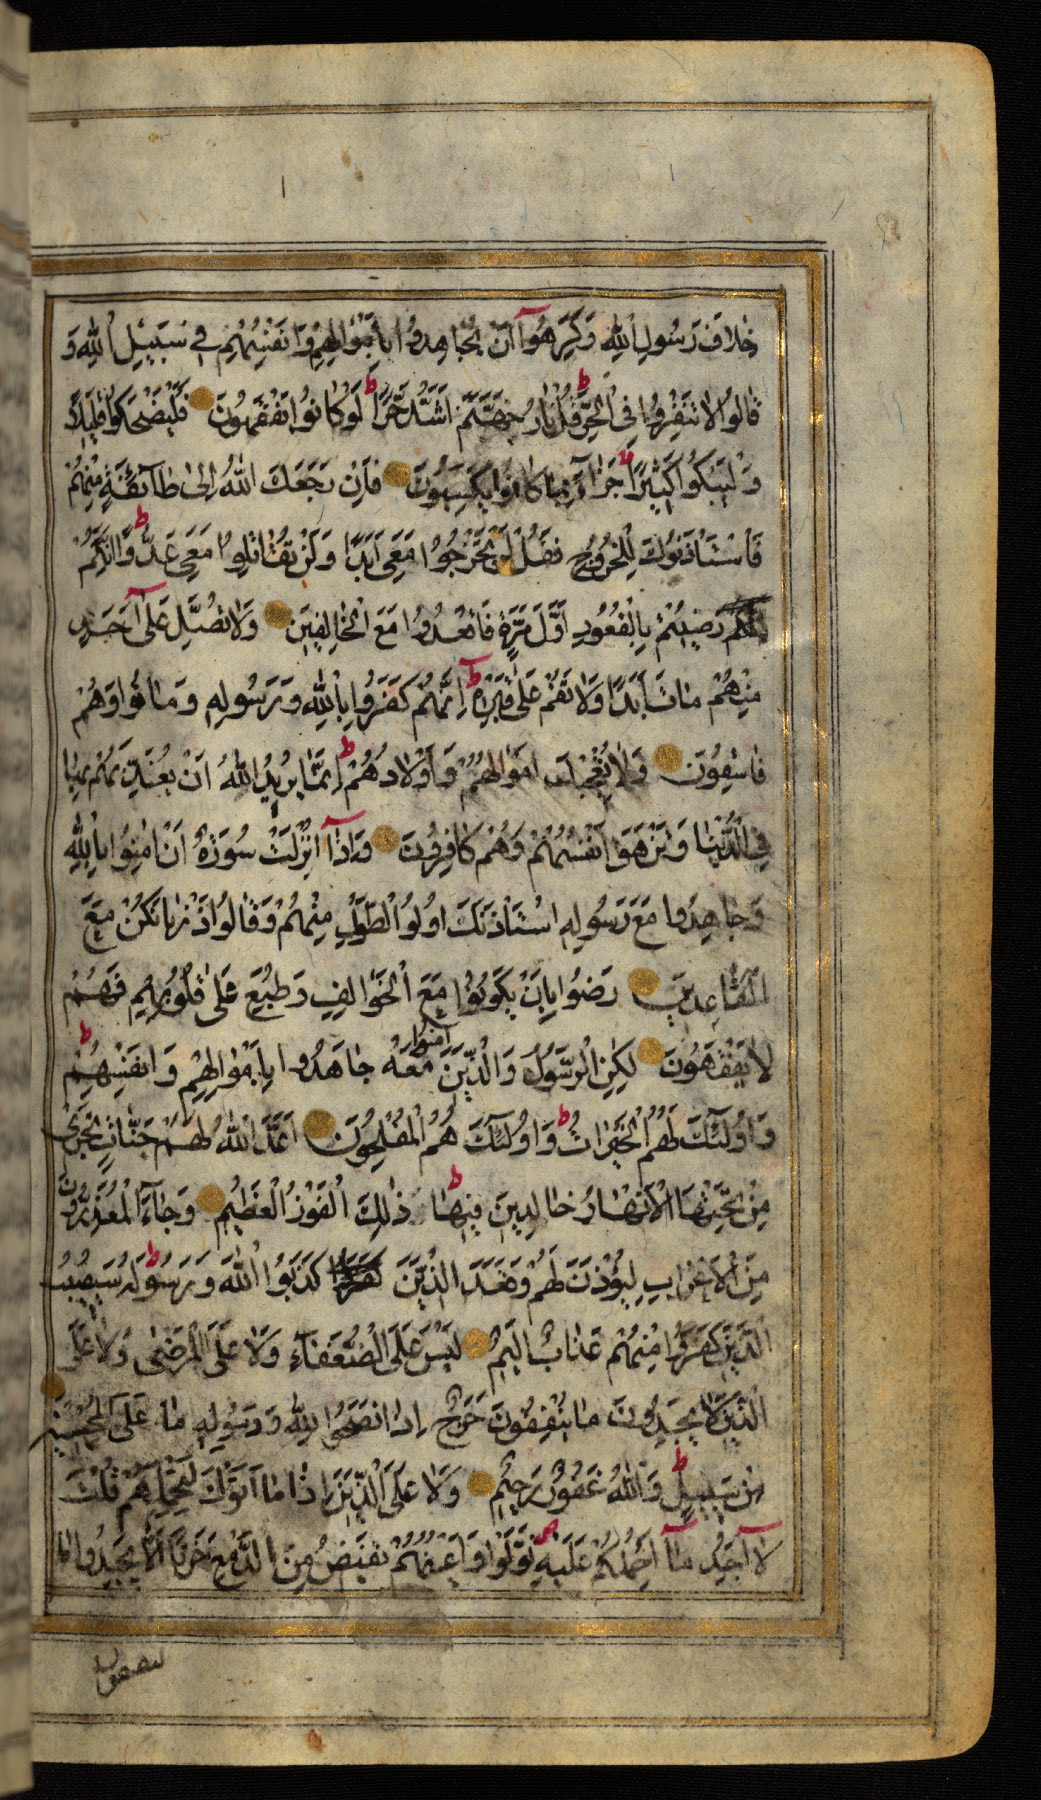 خِلَافَ رَسُولِ اللّٰهِ وَكَرِهُوآ اَنْ يُجَاهِدُوا بِاَمْوَالِهِمْ وَاَنْفُسِهِمْ فِي سَبِيلِ اللّٰهِ وَ
قَالُوا لَا تَنْفِرُوا فِي الْحَرِّ قُلْ نَارُ جَهَنَّمَ اَشَدُّ حَرًّا لَوْ كَانُوا يَفْقَهُونَ فَلْيَضْحَكُوا قَلِيلًا
وَلْيَبْكُوا كَثِيرًا جَزَآءً بِمَا كَانُوا يَكْسِبُونَ فَاِنْ رَجَعَكَ اللّٰهُ اِلٰى طَآئِفَةٍ مِنْهُمْ
فَاسْتَاْذَنُوكَ لِلْخُرُوجِ فَقُلْ لَنْ تَخْرُجُوا مَعِيَ اَبَدًا وَلَنْ تُقَاتِلُوا مَعِيَ عَدُوًّا اِنَّكُمْ
رَضِيتُمْ بِالْقُعُودِ اَوَّلَ مَرَّةٍ فَاقْعُدُوا مَعَ الْخَالِفِينَ وَلَا تُصَلِّ عَلٰٓى اَحَدٍ
مِنْهُمْ مَاتَ اَبَدًا وَلَا تَقُمْ عَلٰى قَبْرِهِ اِنَّهُمْ كَفَرُوا بِاللّٰهِ وَرَسُولِهِ وَمَاتُوا وَهُمْ
فَاسِقُونَ وَلَا تُعْجِبْكَ اَمْوَالُهُمْ وَاَوْلَادُهُمْ اِنَّمَا يُرِيدُ اللّٰهُ اَنْ يُعَذِّبَهُمْ بِهَا
فِي الدُّنْيَا وَتَزْهَقَ اَنْفُسُهُمْ وَهُمْ كَافِرُونَ وَاِذَآ اُنْزِلَتْ سُورَةٌ اَنْ اٰمِنُوا بِاللّٰهِ
وَجَاهِدُوا مَعَ رَسُولِهِ اسْتَاْذَنَكَ اُولُوا الطَّوْلِ مِنْهُمْ وَقَالُوا ذَرْنَا نَكُنْ مَعَ
الْقَاعِدِينَ رَضُوا بِاَنْ يَكُونُوا مَعَ الْخَوَالِفِ وَطُبِعَ عَلٰى قُلُوبِهِمْ فَهُمْ
لَا يَفْقَهُونَ لٰكِنِ الرَّسُولُ وَالَّذِينَ اٰمَنُوا مَعَهُ جَاهَدُوا بِاَمْوَالِهِمْ وَاَنْفُسِهِمْ
وَاُولٰٓئِكَ لَهُمُ الْخَيْرَاتُ وَاُولٰٓئِكَ هُمُ الْمُفْلِحُونَ اَعَدَّ اللّٰهُ لَهُمْ جَنَّاتٍ تَجْرِي
مِنْ تَحْتِهَا الْاَنْهَارُ خَالِدِينَ فِيهَا ذٰلِكَ الْفَوْزُ الْعَظِيمُ وَجَآءَ الْمُعَذِّرُونَ
مِنَ الْاَعْرَابِ لِيُؤْذَنَ لَهُمْ وَقَعَدَ الَّذِينَ كَذَبُوا اللّٰهَ وَرَسُولَهُ سَيُصِيبُ
الَّذِينَ كَفَرُوا مِنْهُمْ عَذَابٌ اَلِيمٌ لَيْسَ عَلَى الضُّعَفَآءِ وَلَا عَلَى الْمَرْضٰى وَلَا عَلَى
الَّذِينَ لَا يَجِدُونَ مَا يُنْفِقُونَ حَرَجٌ اِذَا نَصَحُوا لِلّٰهِ وَرَسُولِهِ مَا عَلَى الْمُحْسِنِينَ
مِنْ سَبِيلٍ وَاللّٰهُ غَفُورٌ رَحِيمٌ وَلَا عَلَى الَّذِينَ اِذَا مَا اَتَوْكَ لِتَحْمِلَهُمْ قُلْتَ
لَآ اَجِدُ مَآ اَحْمِلُكُمْ عَلَيْهِ تَوَلَّوْا وَاَعْيُنُهُمْ تَفِيضُ مِنَ الدَّمْعِ حَزَنًا اَلَّا يَجِدُوا مَا
ينفقون